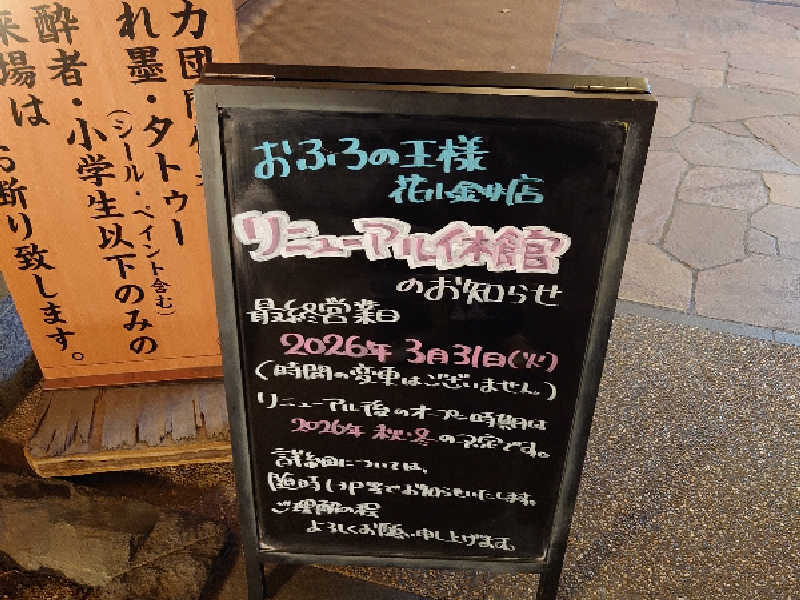 おふろの王様
花小金井店
リニューアル休館
のお知らせ
最終営業日
2026年 3月31日(火)
(時間の変更はございません)
リニューアル後のオープン時期は
2026年 秋・冬の予定です。
詳細については、
随時HP等でお知らせいたします。
ご理解の程
よろしくお願い申し上げます。
力団
れ墨・タトゥー
(シール・ペイント含む)
酔者・小学生以下のみの
来場はお断り致します。